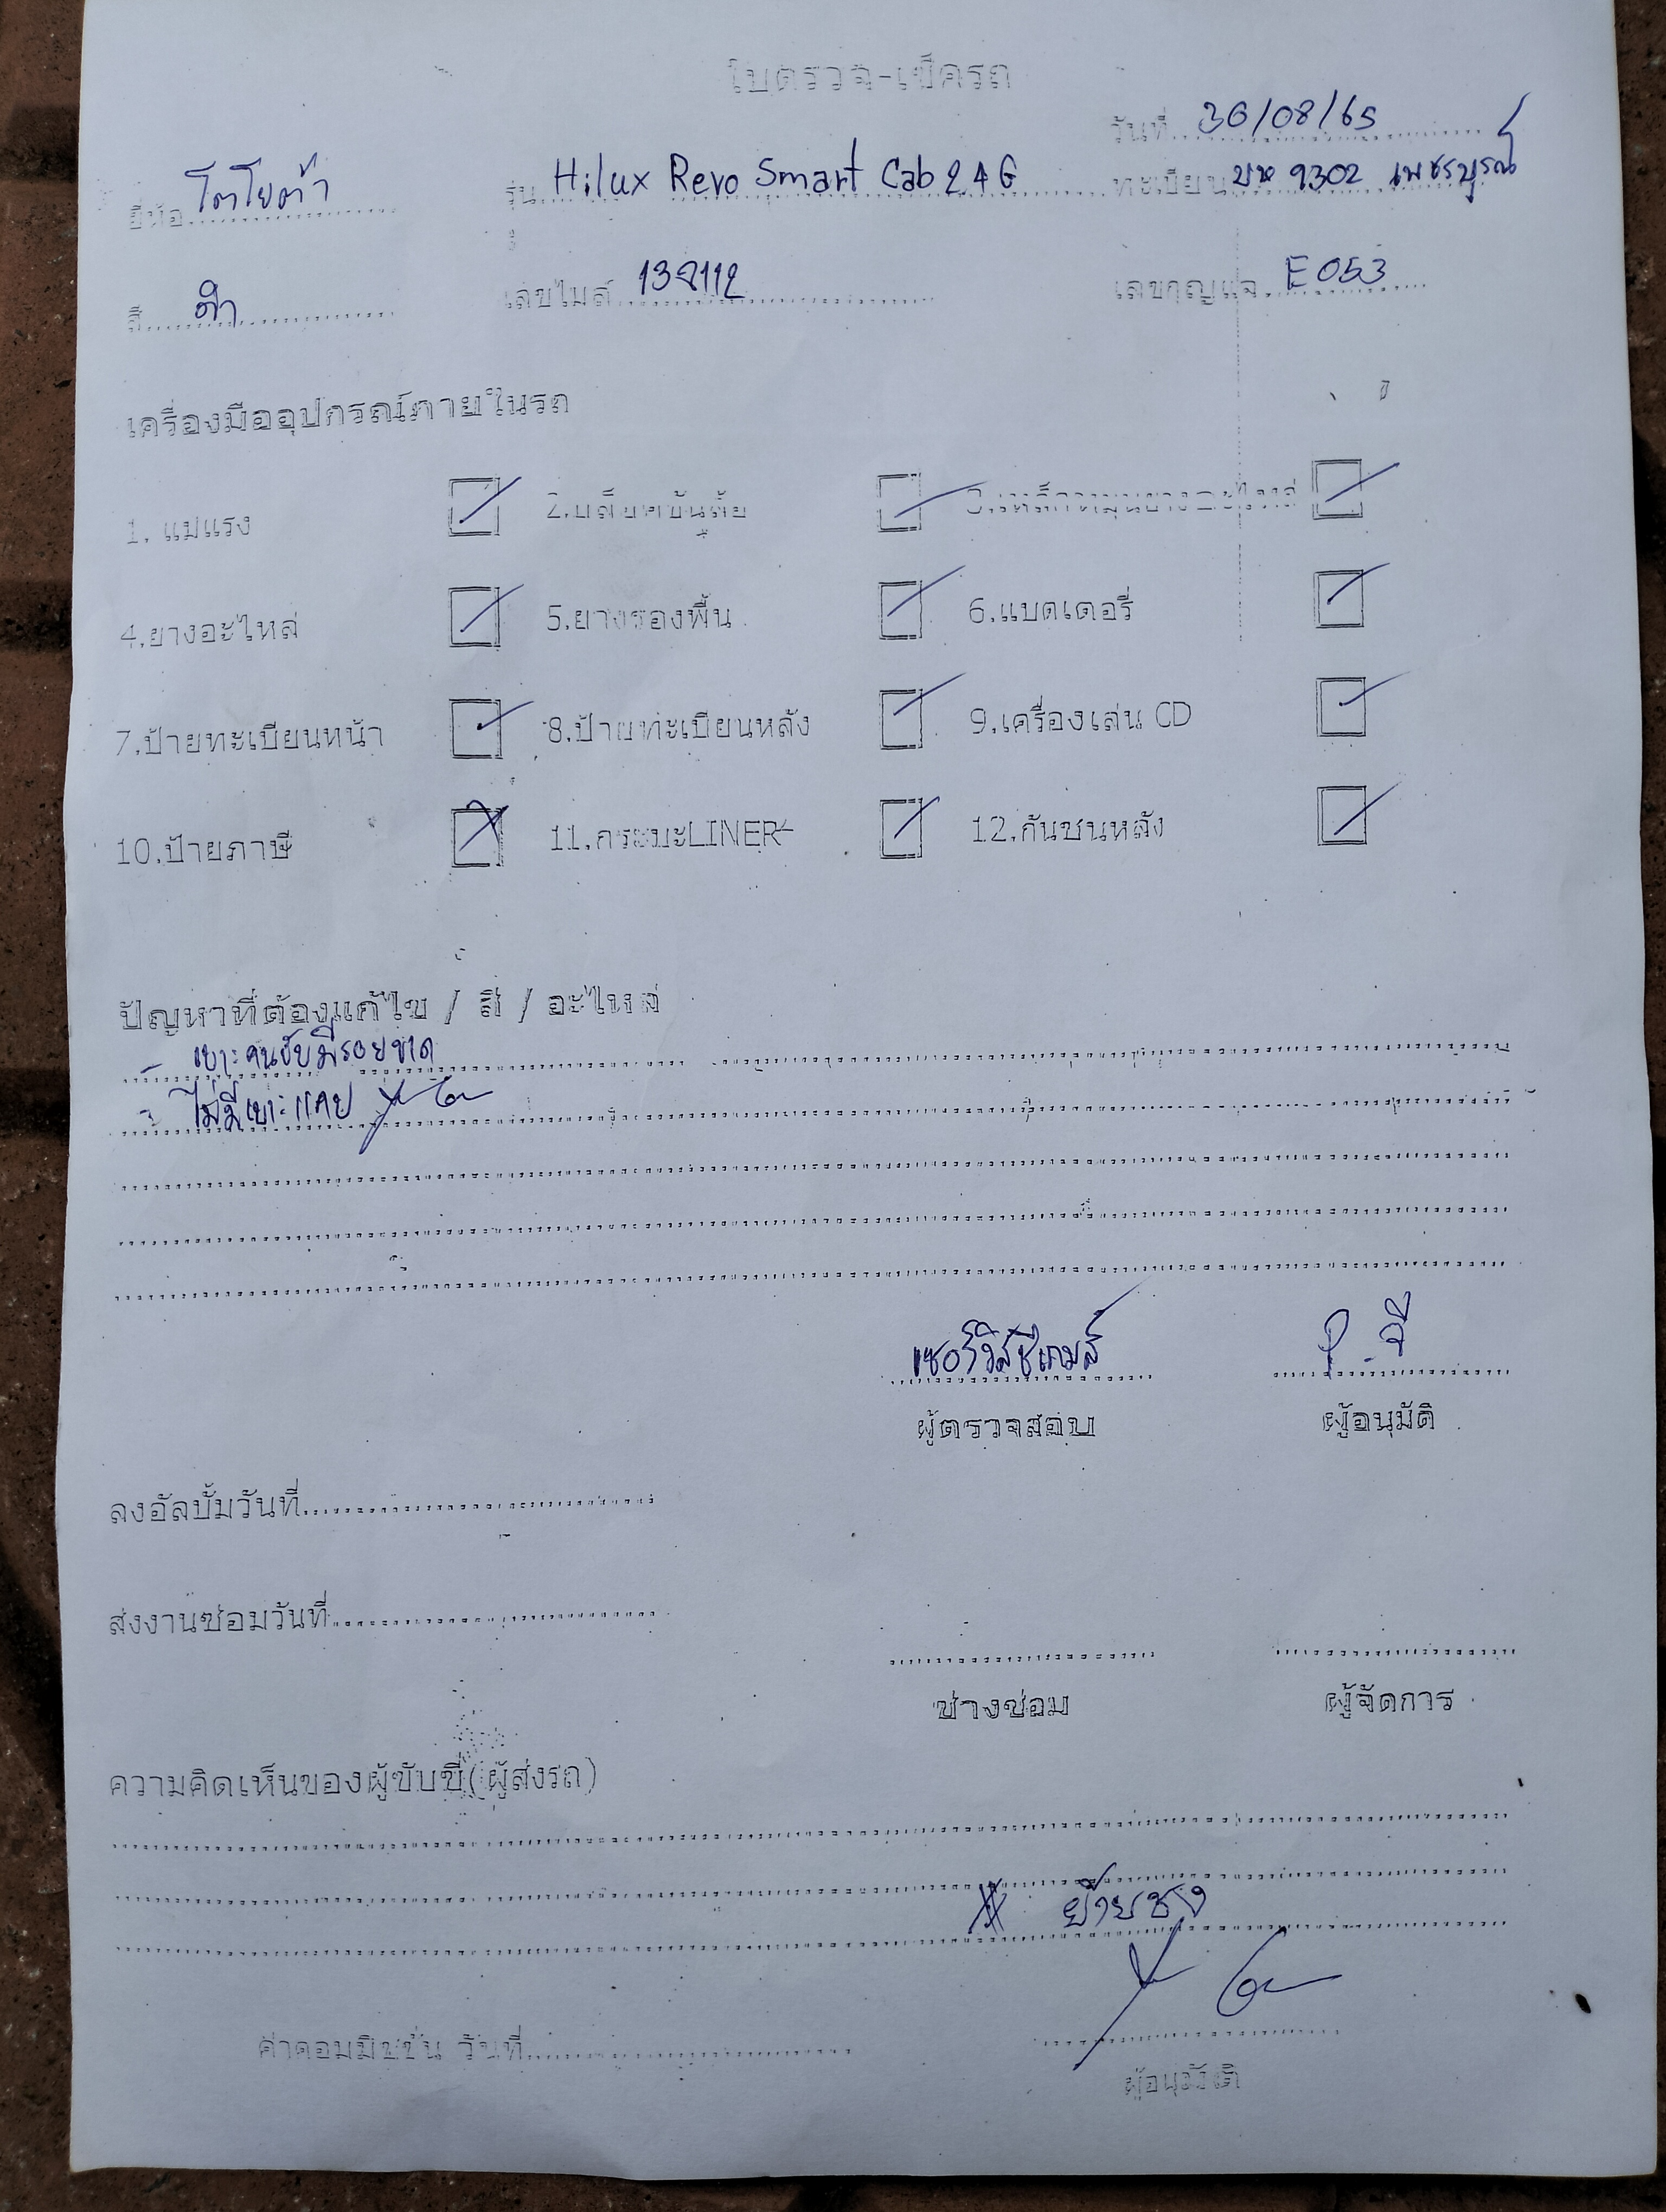 ใบตรวจ-เช็ครถ
วันที่ 30/08/65
ยี่ห้อ โตโยต้า รุ่น Hilux Revo Smart Cab 2.4 G ทะเบียน บห 9302 เพชรบูรณ์
สี ดำ เลขไมล์ เลขกุญแจ E053
เครื่องมืออุปกรณ์ภายในรถ
1. แม่แรง 2.บล็อคขันล้อ
4.ยางอะไหล่ 5.ยางรองพื้น 6.แบตเตอรี่
7.ป้ายทะเบียนหน้า 8.ป้ายทะเบียนหลัง 9.เครื่องเล่น CD
10.ป้ายภาษี 11.กระบะLINER 12.กันชนหลัง
ปัญหาที่ต้องแก้ไข / สี / อะไหล่
- เบาะคนขับมีรอยขาด
- ไม่มีเบาะแคป
ผู้ตรวจสอบ ผู้อนุมัติ
ลงอัลบั้มวันที่
ส่งงานซ่อมวันที่
ช่างซ่อม ผู้จัดการ
ความคิดเห็นของผู้ขับขี่(ผู้ส่งรถ)
ค่าคอมมิชชั่น วันที่
ผู้อนุมัติ